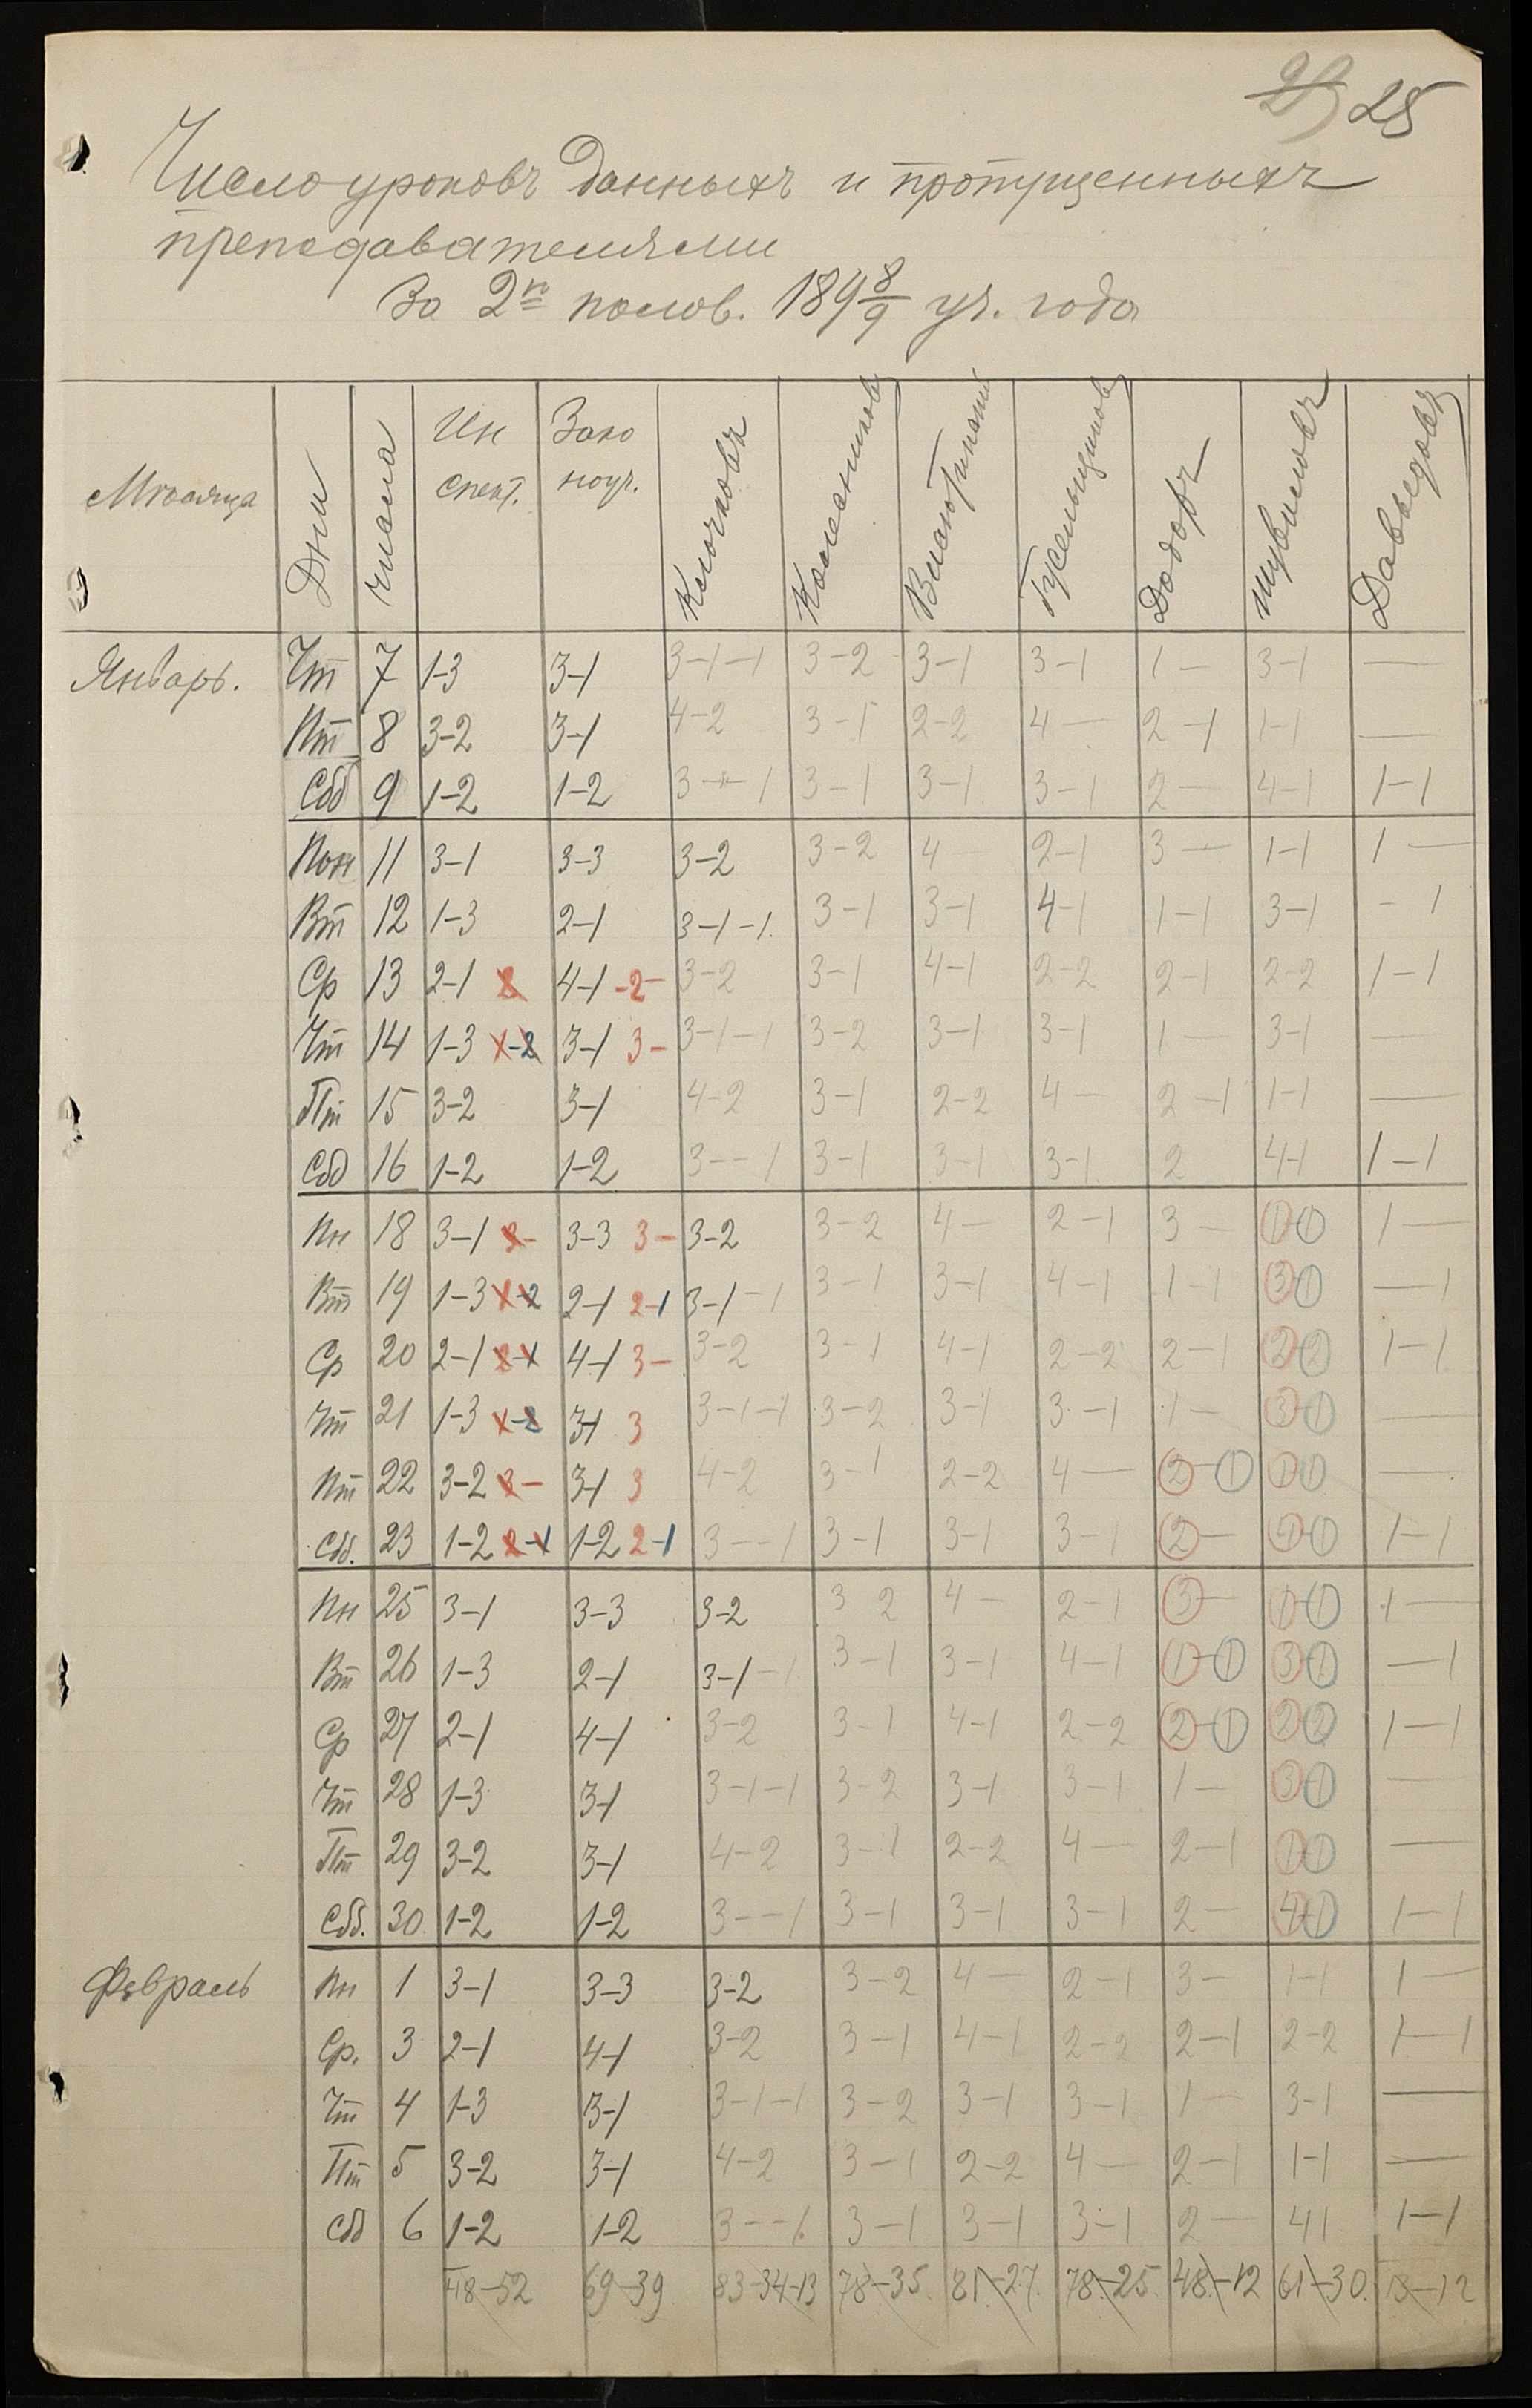 25
Число уроковъ данныхъ и пропущенныхъ
преподавателями
За 2ю полов. 189 8/9 уч. года
Мѣсяца Дни числа Инспект. Законоуч. Клочковъ Колесниковъ Гусельщиковъ Додовъ Шувиловъ Давыдовъ
Январь. Чт 7 1-3 3-1 3-1-1 3-2 3-1 3-1 1 — 3-1 —
Пт 8 3-2 3-1 4-2 3-1 2-2 4 — 2-1 1-1 —
Сбд 9 1-2 1-2 3--1 3-1 3-1 3-1 2 — 4-1 1-1
Пон 11 3-1 3-3 3-2 3-2 4 2-1 3 — 1-1 1 —
Вт 12 1-3 2-1 3-1-1 3-1 3-1 4-1 1-1 3-1 - 1
Ср 13 2-1 2 4-1 -2- 3-2 3-1 4-1 2-2 2-1 2-2 1-1
Чт 14 1-3 x-2 3-1 3- 3-1-1 3-2 3-1 3-1 1 — 3-1 —
Пт 15 3-2 3-1 4-2 3-1 2-2 4 — 2-1 1-1 —
Сбд 16 1-2 1-2 3--1 3-1 3-1 3-1 2 4-1 1-1
Пн 18 3-1 2- 3-3 3- 3-2 3-2 4 — 2-1 3 — 1-1 1 —
Вт 19 1-3 x-2 2-1 2-1 3-1-1 3-1 3-1 4-1 1-1 3-1 — 1
Ср 20 2-1 2-1 4-1 3- 3-2 3-1 4-1 2-2 2-1 2-2 1-1
Чт 21 1-3 x-2 3-1 3 3-1-1 3-2 3-1 3-1 1 — 3-1 —
Пт 22 3-2 3- 3-1 3 4-2 3-1 2-2 4 — 2-1 1-1 —
Сбд. 23 1-2 2-1 1-2 2-1 3--1 3-1 3-1 3-1 2 — 4-1 1-1
Пн 25 3-1 3-3 3-2 3 2 4 — 2-1 3 — 1-1 1 —
Вт 26 1-3 2-1 3-1-1 3-1 3-1 4-1 1-1 3-1 — 1
Ср 27 2-1 4-1 3-2 3-1 4-1 2-2 2-1 2-2 1-1
Чт 28 1-3 3-1 3-1-1 3-2 3-1 3-1 1 — 3-1 —
Пт 29 3-2 3-1 4-2 3-1 2-2 4 — 2-1 1-1 —
Сбд. 30 1-2 1-2 3--1 3-1 3-1 3-1 2 — 4-1 1-1
Февраль Пн 1 3-1 3-3 3-2 3-2 4 — 2-1 3 — 1-1 1 —
Ср. 3 2-1 4-1 3-2 3-1 4-1 2-2 2-1 2-2 1-1
Чт 4 1-3 3-1 3-1-1 3-2 3-1 3-1 1 — 3-1 —
Пт 5 3-2 3-1 4-2 3-1 2-2 4 — 2-1 1-1 —
Сбд 6 1-2 1-2 3--1 3-1 3-1 3-1 2 — 4 1 1-1
48-52 69-39 83-34-13 78-35 81-27 78-25 48-12 61-30 13-12